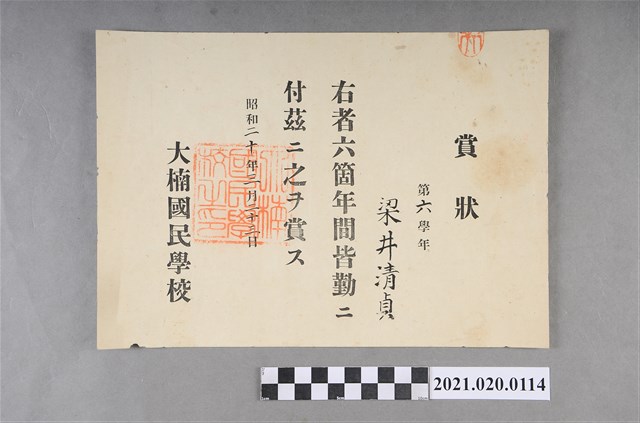 賞狀
第六學年
梁井清貞
右者六箇年間皆勤ニ
付茲ニ之ヲ賞ス
昭和二十年三月二十三日
大楠國民學校
2021.020.0114